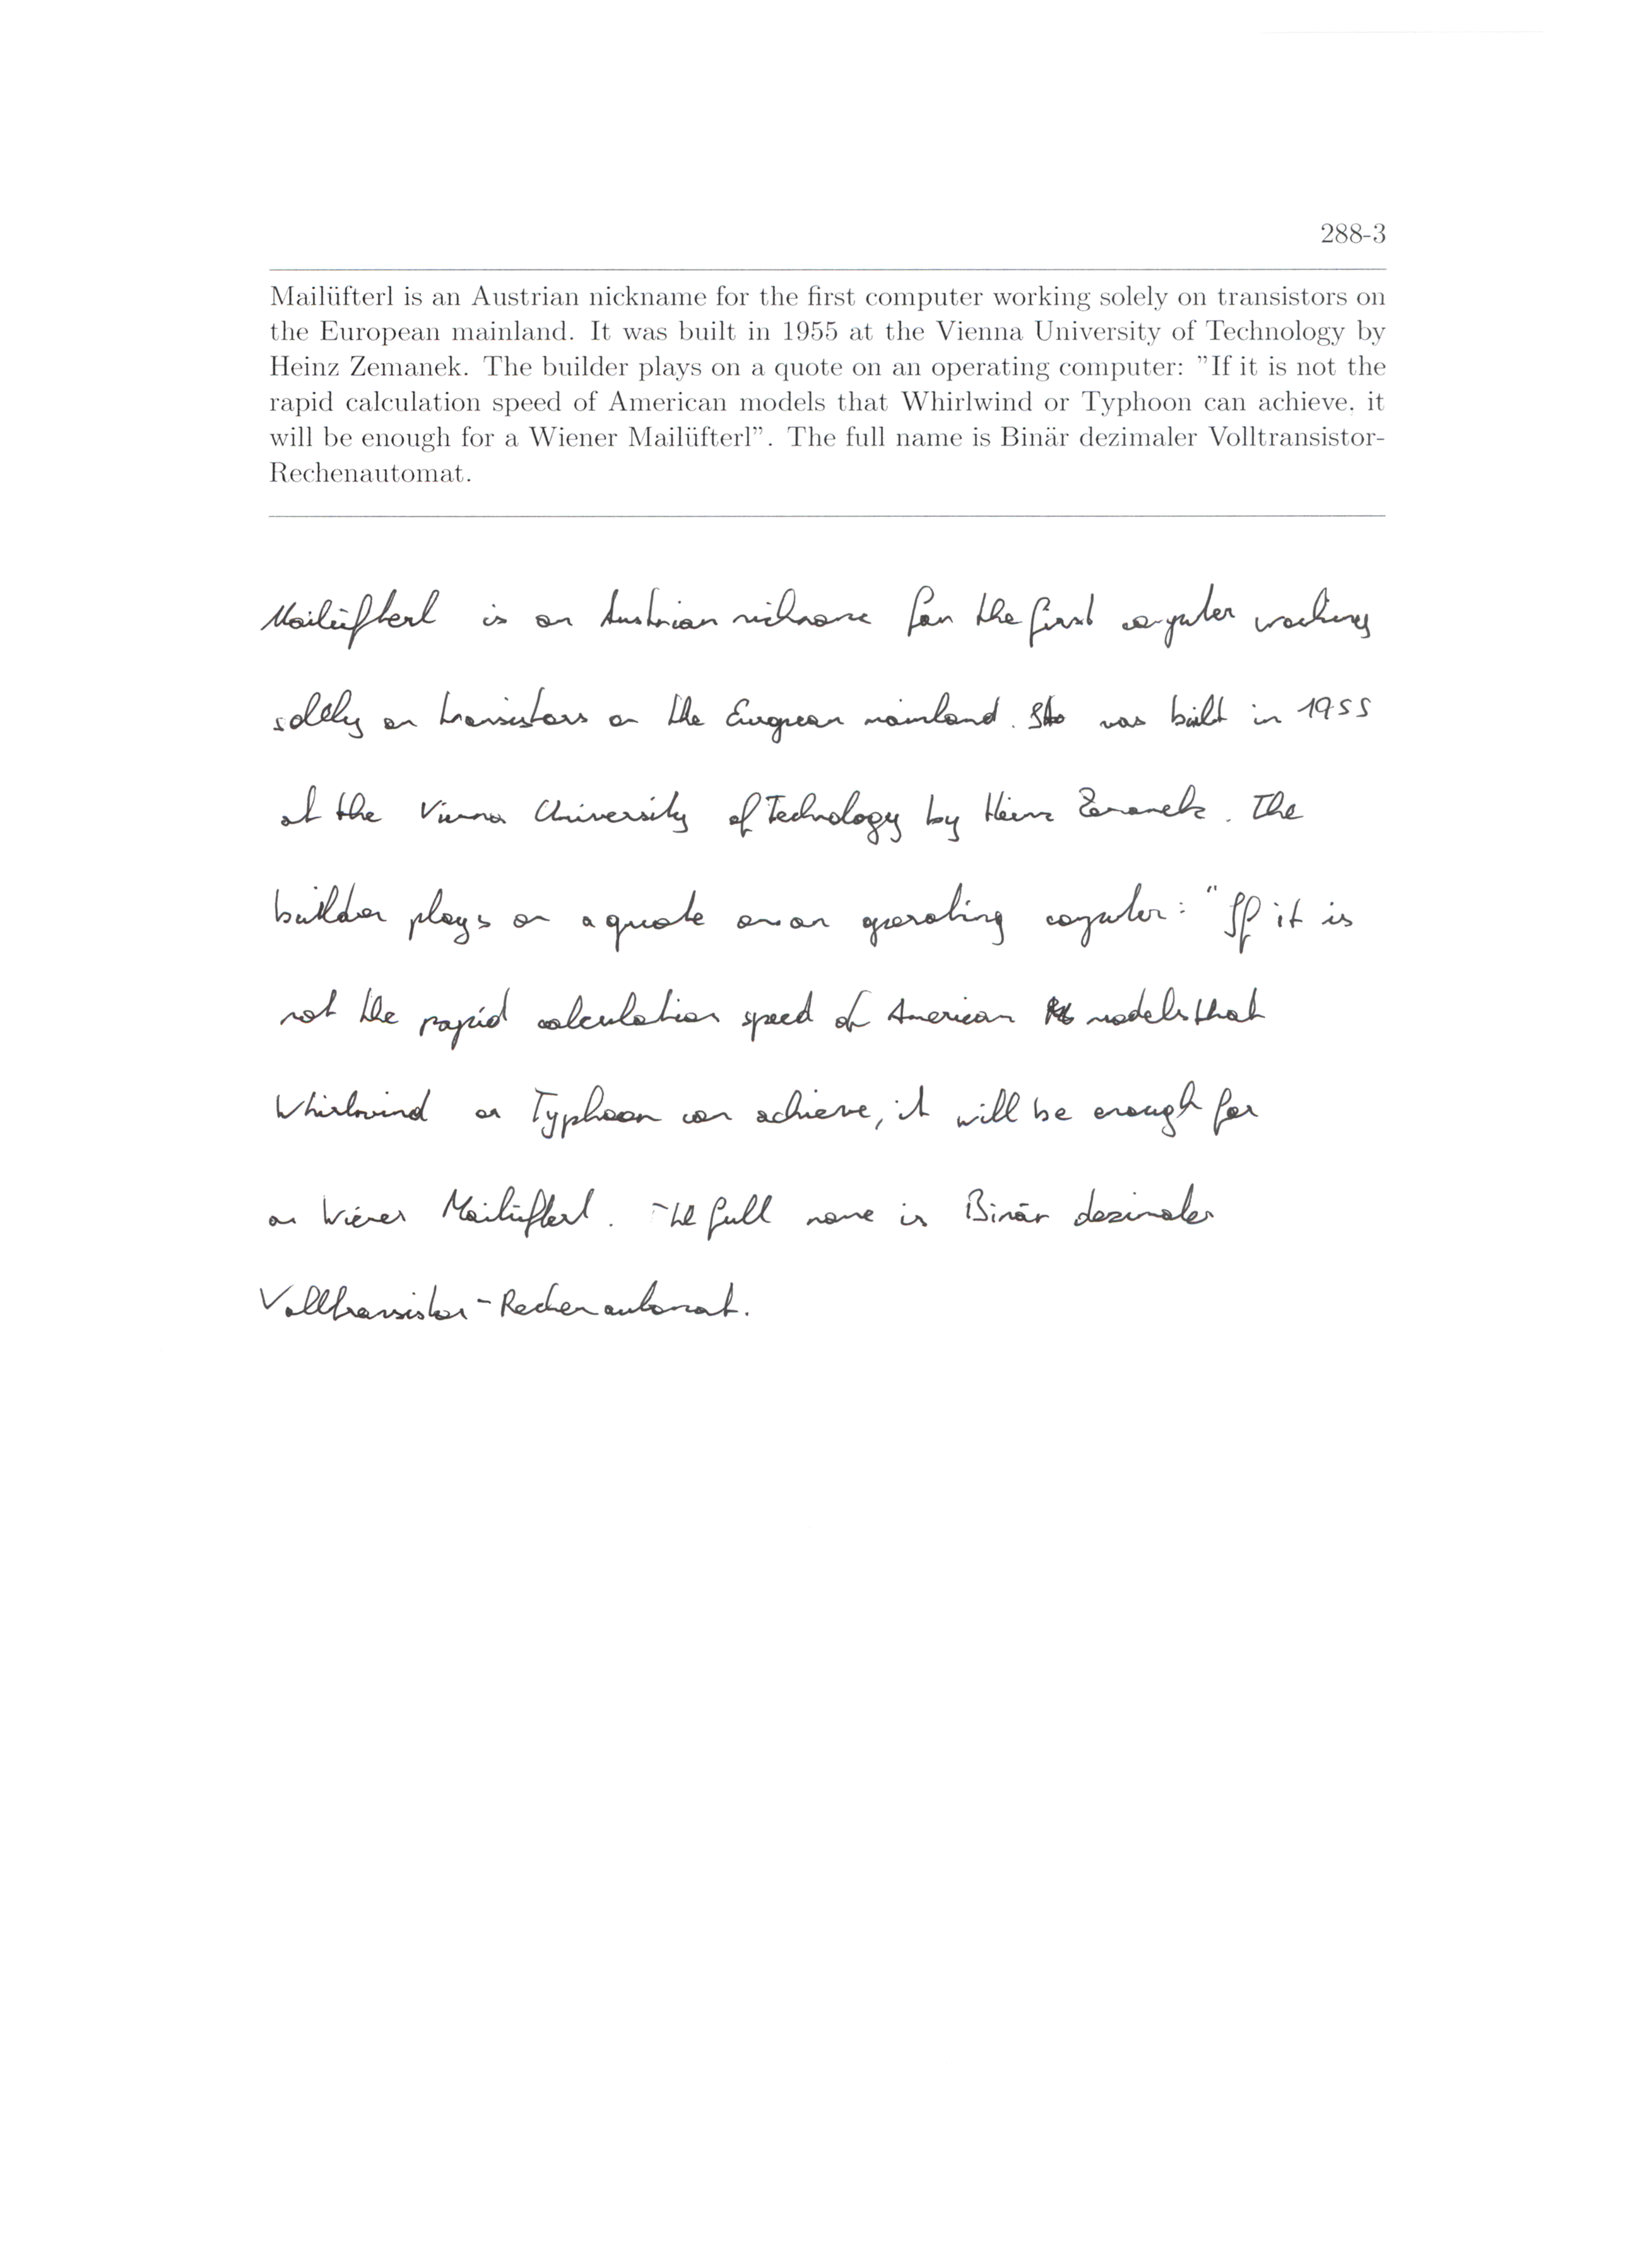 288-3
Mailüfterl is an Austrian nickname for the first computer working solely on transistors on
the European mainland. It was built in 1955 at the Vienna University of Technology by
Heinz Zemanek. The builder plays on a quote on an operating computer: ”If it is not the
rapid calculation speed of American models that Whirlwind or Typhoon can achieve. it
will be enough for a Wiener Mailüfterl”. The full name is Binär dezimaler Volltransistor-
Rechenautomat.
Mailüfterl is an Austrian nickname for the first computer working
solely on transistors on the European mainland. It was built in 1955
at the Vienna University of Technology by Heinz Zemanek. The
builder plays on a quote on an operating computer: "If it is
not the rapid calculation speed of American models that
Whirlwind or Typhoon can achieve, it will be enough for
a Wiener Mailüfterl. The full name is Binär dezimaler
Volltransistor-Rechenautomat.